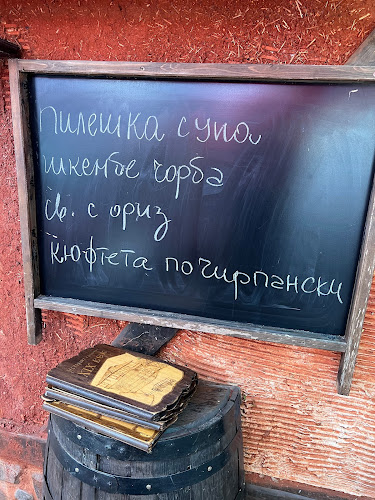 пилешка супа
шкембе чорба
св. с ориз
кюфтета по чирпански